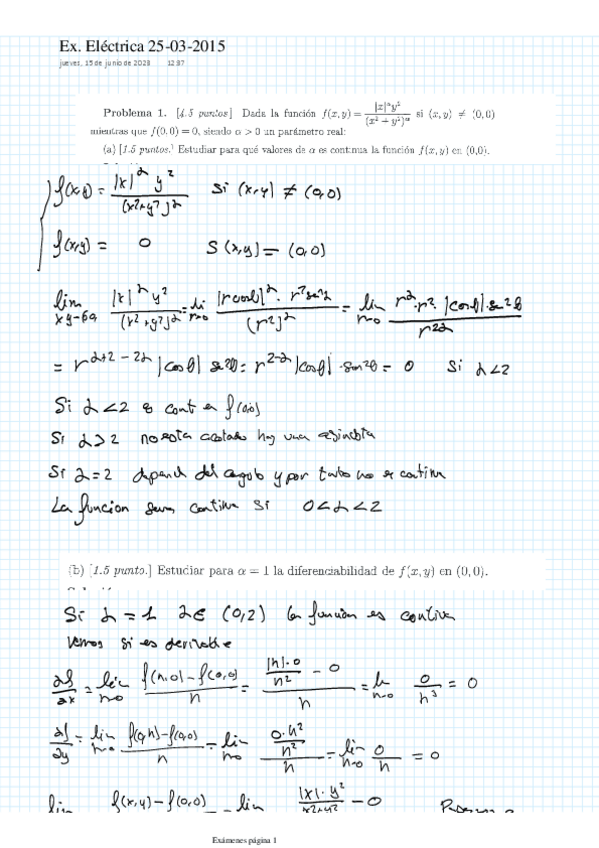 Ex. Eléctrica 25-03-2015
jueves, 15 de junio de 2023 12:37
Problema 1. [4.5 puntos] Dada la función f(x,y) = |x|^α y² / (x² + y²)^α si (x,y) ≠ (0,0)
mientras que f(0,0) = 0, siendo α > 0 un parámetro real:
(a) [1.5 puntos.] Estudiar para qué valores de α es continua la función f(x,y) en (0,0).
f(x,y) = |x|^α y² / (x²+y²)^α Si (x,y) ≠ (0,0)
f(x,y) = 0 S (x,y) = (0,0)
lim |x|^α y² / (x²+y²)^α = li r→0 |r cosθ|^α · r² se²θ / (r²)^α = lim r→0 r^α · r² · |cosθ| · se²θ / r^2α
= r^α+2-2α |cosθ| se²θ = r^2-α |cosθ| · sen²θ = 0 Si α<2
Si α<2 es cont en f(0,0)
Si α>2 no esta acotado hay una asintota
Si α=2 depend del angulo y por tanto no es continua
La funcion sera continua si 0<α<2
(b) [1.5 punto.] Estudiar para α = 1 la diferenciabilidad de f(x,y) en (0,0).
Si α = 1 α ∈ (0,2) la función es contiva
Vemos si es derivable
∂f/∂x = lim h→0 f(h,0) - f(0,0) / h = |h|·0/h² - 0 / h = li h→0 0/h³ = 0
∂f/∂y = lim h→0 f(0,h) - f(0,0) / h = lim h→0 0·h²/h² / h = lim h→0 0/h = 0
lim f(x,y) - f(0,0) = lim |x|·y²/x²+y² - 0
Exámenes página 1